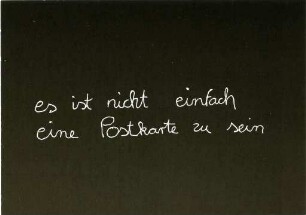 es ist nicht einfach
eine Postkarte zu sein